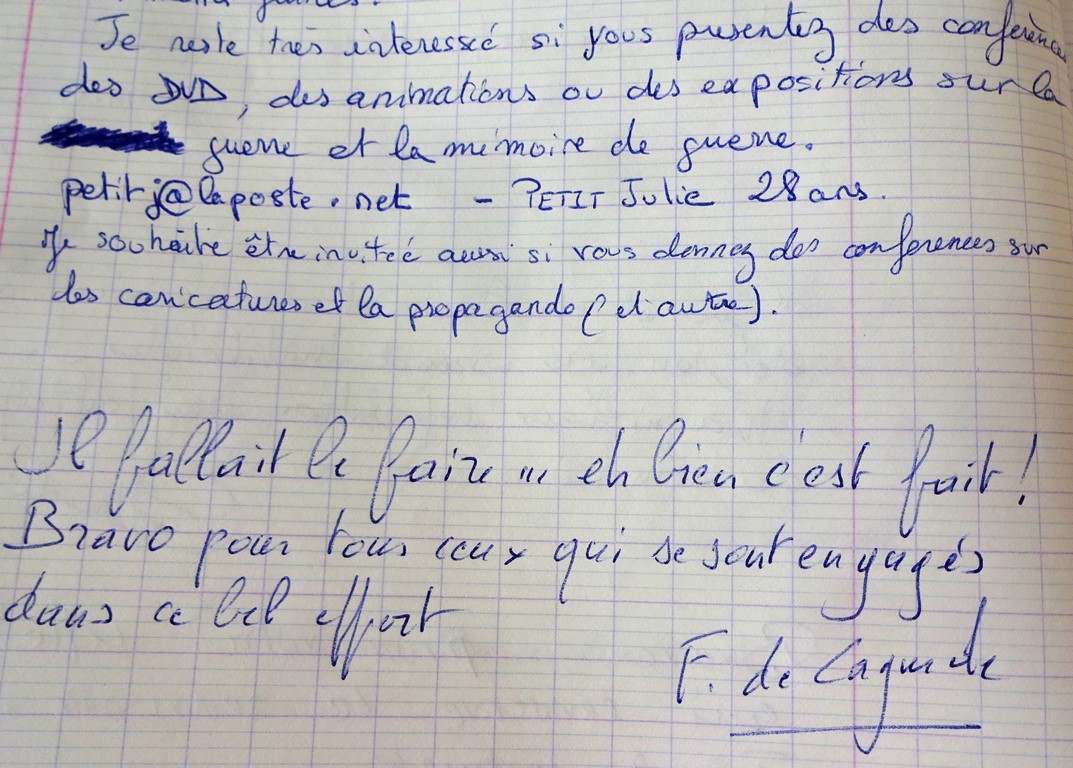 Je reste très interessée si vous presentez des conférences
des DVD, des animations ou des expositions sur la
guerre et la mémoire de guerre.
petitj@laposte.net - PETIT Julie 28 ans.
Je souhaite être invitée aussi si vous donnez des conferences sur
les caricatures et la propagande (et autre).
Il fallait le faire ... eh bien c'est fait !
Bravo pour tous ceux qui se sont engagés
dans ce bel effort
F. de